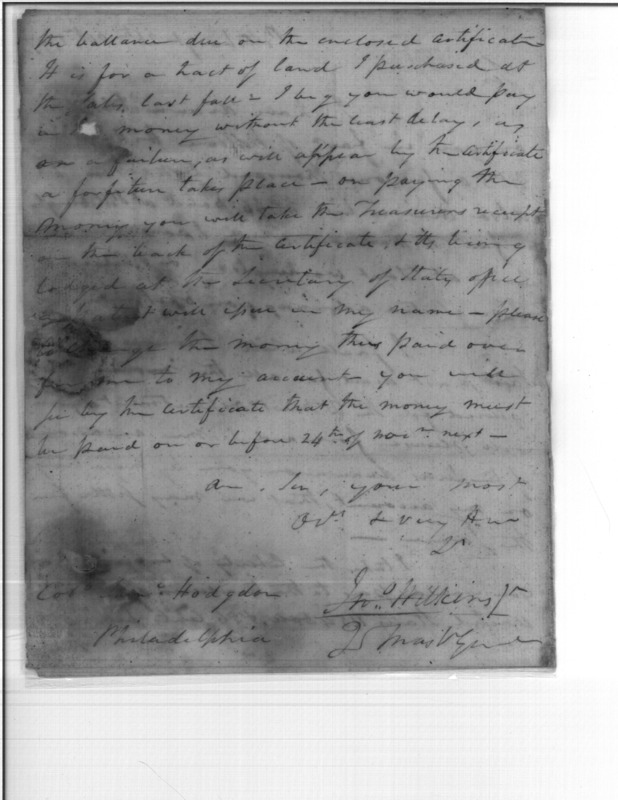 the ballance due on the enclosed certificate
It is for a tract of land I purchased at
the sales last fall & I beg you would pay
in the money without the least delay, as
on a failure, as will appear by the certificate
a forfiture takes place – on paying the
money you will take the Treasurers receipt
on the back of the certificate, & this being
lodged at the Secretary of State office
will issue in my name – please
the money thus paid over
for me to my account you will
see by the certificate that the money must
be paid on or before 24th of Novr. next –
am, Sir, your most
Obt. & very Hum
Sr
Hodgdon
Jno. Wilkins Jr
Philadelphia
Qr Mastr Genl